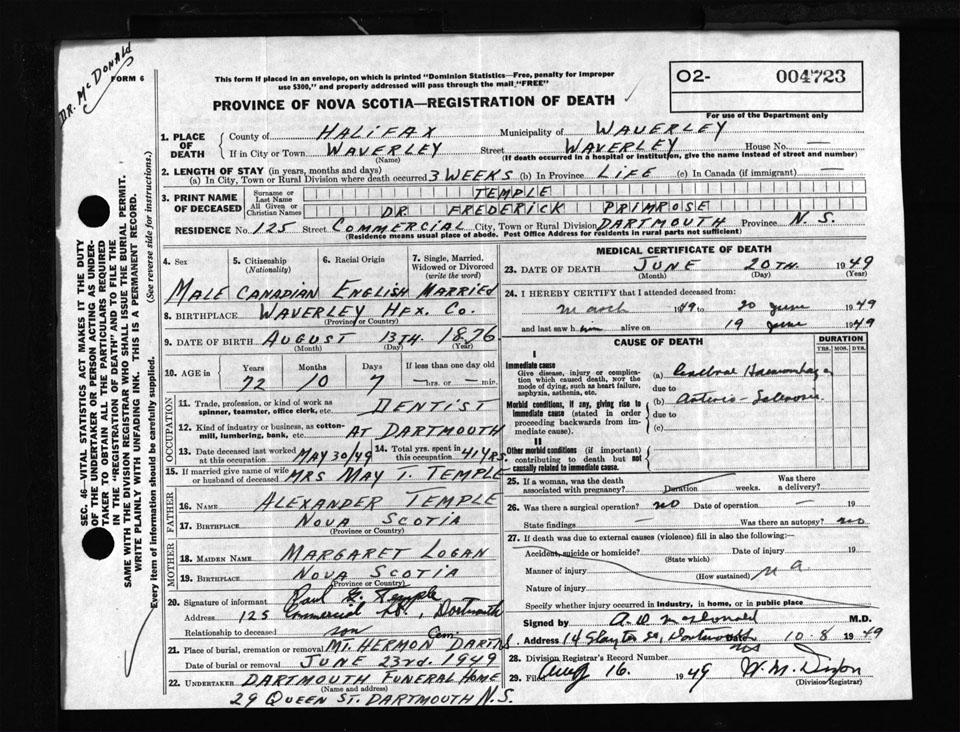 DR. McDONALD
FORM 6
This form if placed in an envelope, on which is printed "Dominion Statistics—Free, penalty for improper
use $300," and properly addressed will pass through the mail "FREE"
O2- 004723
For use of the Department only
PROVINCE OF NOVA SCOTIA—REGISTRATION OF DEATH ✓
SEC. 46—VITAL STATISTICS ACT MAKES IT THE DUTY
OF THE UNDERTAKER OR PERSON ACTING AS UNDER-
TAKER TO OBTAIN ALL THE PARTICULARS REQUIRED
IN THE "REGISTRATION OF DEATH" AND TO FILE THE
SAME WITH THE DIVISION REGISTRAR WHO SHALL ISSUE THE BURIAL PERMIT.
WRITE PLAINLY WITH UNFADING INK. THIS IS A PERMANENT RECORD.
Every item of information should be carefully supplied. (See reverse side for instructions.)
1. PLACE OF DEATH
County of HALIFAX Municipality of WAVERLEY
If in City or Town WAVERLEY Street WAVERLEY House No. —
(Name) (If death occurred in a hospital or institution, give the name instead of street and number)
2. LENGTH OF STAY (in years, months and days)
(a) In City, Town or Rural Division where death occurred 3 WEEKS (b) In Province LIFE (c) In Canada (if immigrant) —
3. PRINT NAME OF DECEASED
Surname or Last Name TEMPLE
All Given or Christian Names DR. FREDERICK PRIMROSE
RESIDENCE No. 125 Street COMMERCIAL City, Town or Rural Division DARTMOUTH Province N.S.
(Residence means usual place of abode. Post Office Address for residents in rural parts not sufficient)
4. Sex 5. Citizenship (Nationality) 6. Racial Origin 7. Single, Married, Widowed or Divorced (write the word)
MALE CANADIAN ENGLISH MARRIED
8. BIRTHPLACE WAVERLEY HFX. CO.
(Province or Country)
9. DATE OF BIRTH AUGUST 13TH. 1876
(Month) (Day) (Year)
10. AGE in Years Months Days If less than one day old
72 10 7 —hrs. or —min.
OCCUPATION
11. Trade, profession, or kind of work as
spinner, teamster, office clerk, etc. DENTIST
12. Kind of industry or business, as cotton-
mill, lumbering, bank, etc. AT DARTMOUTH
13. Date deceased last worked at this occupation MAY 30/49 14. Total yrs. spent in this occupation 41 YRS.
15. If married give name of wife or husband of deceased MRS MAY T. TEMPLE
FATHER
16. NAME ALEXANDER TEMPLE
17. BIRTHPLACE NOVA SCOTIA
(Province or Country)
MOTHER
18. MAIDEN NAME MARGARET LOGAN
19. BIRTHPLACE NOVA SCOTIA
(Province or Country)
20. Signature of informant Temple
Address 125 Commercial St., Dartmouth
Relationship to deceased son
21. Place of burial, cremation or removal MT. HERMON Cem. DARTNS.
Date of burial or removal JUNE 23rd. 1949
22. UNDERTAKER DARTMOUTH FUNERAL HOME
(Name and address)
29 QUEEN ST. DARTMOUTH N.S.
MEDICAL CERTIFICATE OF DEATH
23. DATE OF DEATH JUNE 20TH. 1949
(Month) (Day) (Year)
24. I HEREBY CERTIFY that I attended deceased from:
March 1949 to 20 June 1949
and last saw him alive on 19 June 1949
CAUSE OF DEATH
DURATION
YRS. MOS. DYS.
I
Immediate cause
Give disease, injury or complica-
tion which caused death, NOT the
mode of dying, such as heart failure,
asphyxia, asthenia, etc.
(a) Cerebral Haemorrhage
due to
Morbid conditions, if any, giving rise to
immediate cause (stated in order
proceeding backwards from im-
mediate cause).
(b) Arterio-Sclerosis
due to
(c)
II
Other morbid conditions (if important)
contributing to death but not
causally related to immediate cause.
25. If a woman, was the death
associated with pregnancy? Duration weeks. Was there a delivery?
26. Was there a surgical operation? no Date of operation — 19
State findings — Was there an autopsy? no
27. If death was due to external causes (violence) fill in also the following:—
Accident, suicide or homicide? Date of injury 19
(State which)
Manner of injury n a
(How sustained)
Nature of injury
Specify whether injury occurred in industry, in home, or in public place
Signed by A. D. McDonald M.D.
Address 14 Slayter St., Dartmouth NS 10-8 1949
28. Division Registrar's Record Number
29. Filed Aug 16. 1949 W. M. Dixon
(Division Registrar)